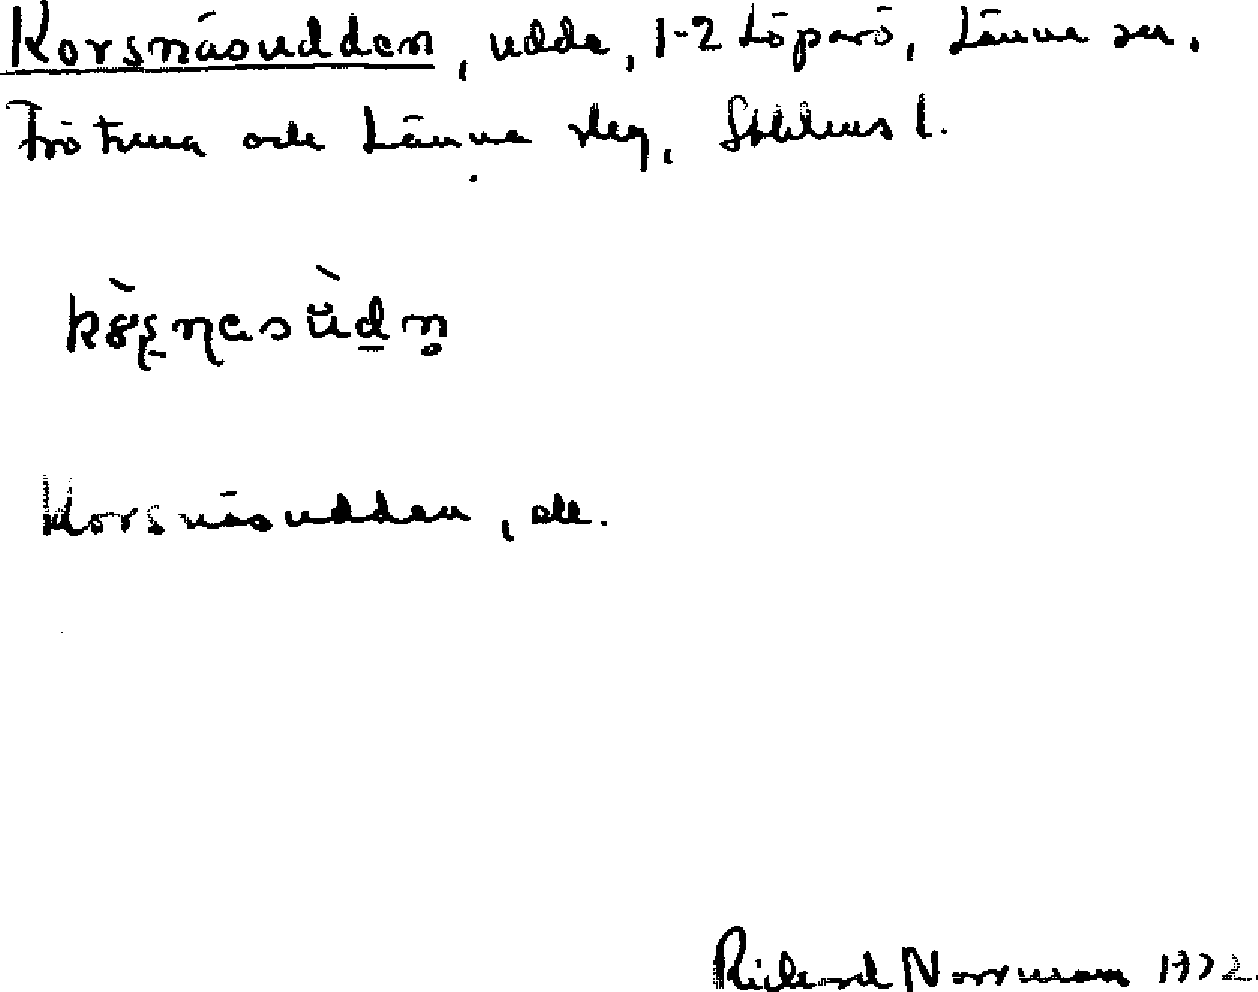 Korsnäsudden, udde, 1-2 Löparö, Länna sn.
Frötuna och Länna slg, Sthlms l.
Korsnäsudden, ek.
Richard Norrman 1932.